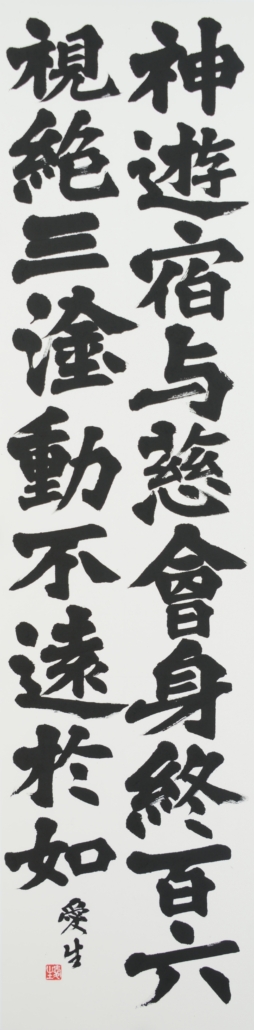 神遊宿与慈會身終百六
視絶三塗動不遠於如
愛生